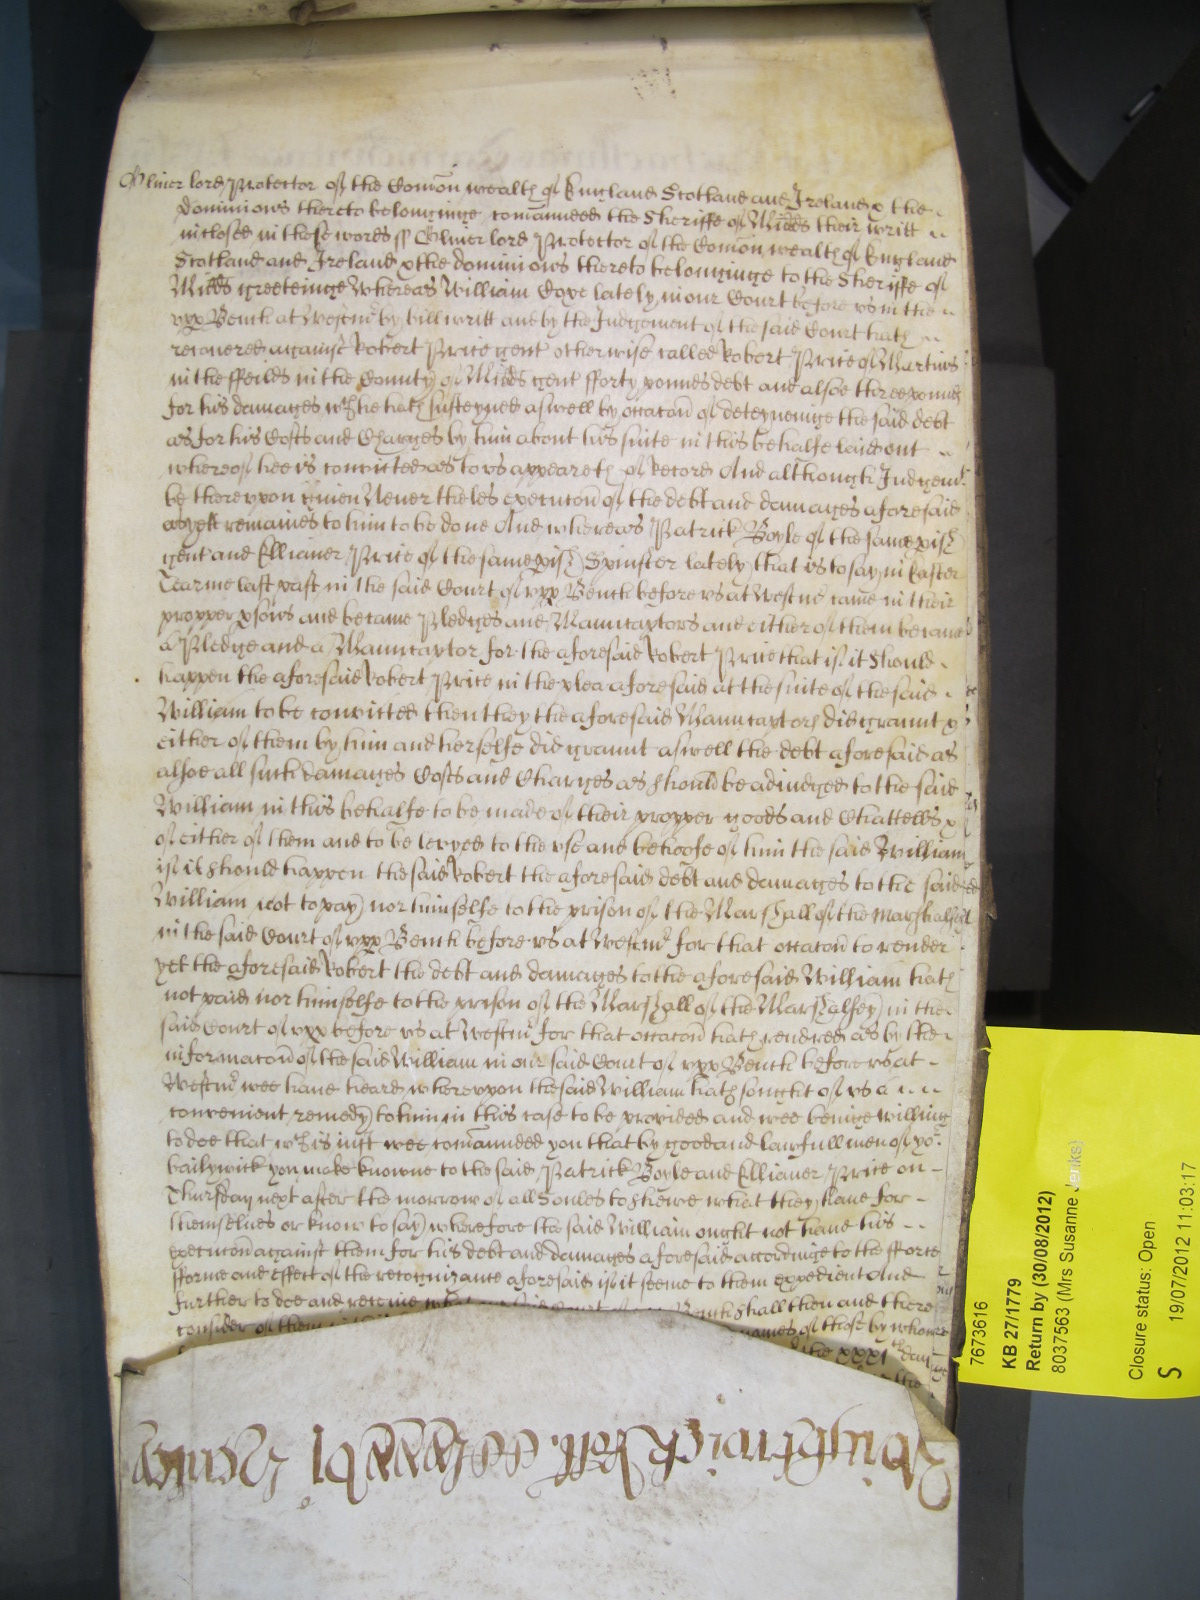 Oliver lord Protector of the Comon wealth of England Scotland and Ireland & the
dominions thereto belonginge comanded the Sheriffe of Midds their writt
inclosed in these words ss Oliver lord Protector of the Comon wealth of England
Scotland and Ireland & the dominions thereto belonginge to the Sheriffe of
Midds greeteinge Whereas William Coxe lately in our Court before us in the
upp Bench at Westmr by bill writt and by the Judgement of the said Court hath
recovered against Robert Price gent otherwise called Robert Price of Martins
in the ffeilds in the County of Midds gent fforty pounds debt and alsoe three pounds
for his damages wch he hath susteyned aswell by occacon of deteyneinge the said debt
as for his Costs and Charges by him about his suite in this behalfe laid out
whereof hee is convicted as to us appeareth of Record And although Judgemt
be thereupon given Never theles execucon of the debt and damages aforesaid
as yett remaines to him to be done And whereas Patrick Boyle of the same pish
gent and Ellianer Price of the same pish Spinster lately that is to say in Easter
Tearme last past in the said Court of upp Bench before us at Westmr came in their
propper psons and became Pledges and Maincaptors and either of them became
a Pledge and a Maincaptor for the aforesaid Robert Price that if it should
happen the aforesaid Robert Price in the plea aforesaid at the suite of the said
William to be convicted then they the aforesaid Maincaptors did graunt &
either of them by him and herselfe did graunt aswell the debt aforesaid as
alsoe all such damages Costs and Charges as should be adiudged to the said
William in this behalfe to be made of their propper goods and Chattells &
of either of them and to be levyed to the use and behoofe of him the said William
if it should happen the said Robert the aforesaid debt and damages to the said
William not to pay nor himselfe to the prison of the Marshall of the Marshalsey
in the said Court of upp Bench before us at Westmr for that occacon to render
yet the aforesaid Robert the debt and damages to the aforesaid William hath
not paid nor himselfe to the prison of the Marshall of the Marshalsey in the
said Court of upp before us at Westmr for that occacon hath rendred as by the
informacon of the said William in our said Court of upp Bench before us at
Westmr wee have heard whereupon the said William hath sought of us a
convenient remedy to him in this case to be provided and wee beinge willing
to doe that wch is iust wee comaunded you that by good and lawfull men of yor
bailywick you make knowne to the said Patrick Boyle and Ellianer Price on
Thursday next after the morrow of all Soules to shewe what they have for
themselves or know to say wherefore the said William ought not have his
execucon against them for his debt and damages aforesaid accordinge to the fforce
fforme and effect of the recognizance aforesaid if it seeme to them expedient And
further to doe and receive Bench shall then and there
consider of them names of those by whome
the xxxith day
the
7673616
KB 27/1779
Return by (30/08/2012)
8037563 (Mrs Susanne Jenks)
Closure status: Open
S 19/07/2012 11:03:17